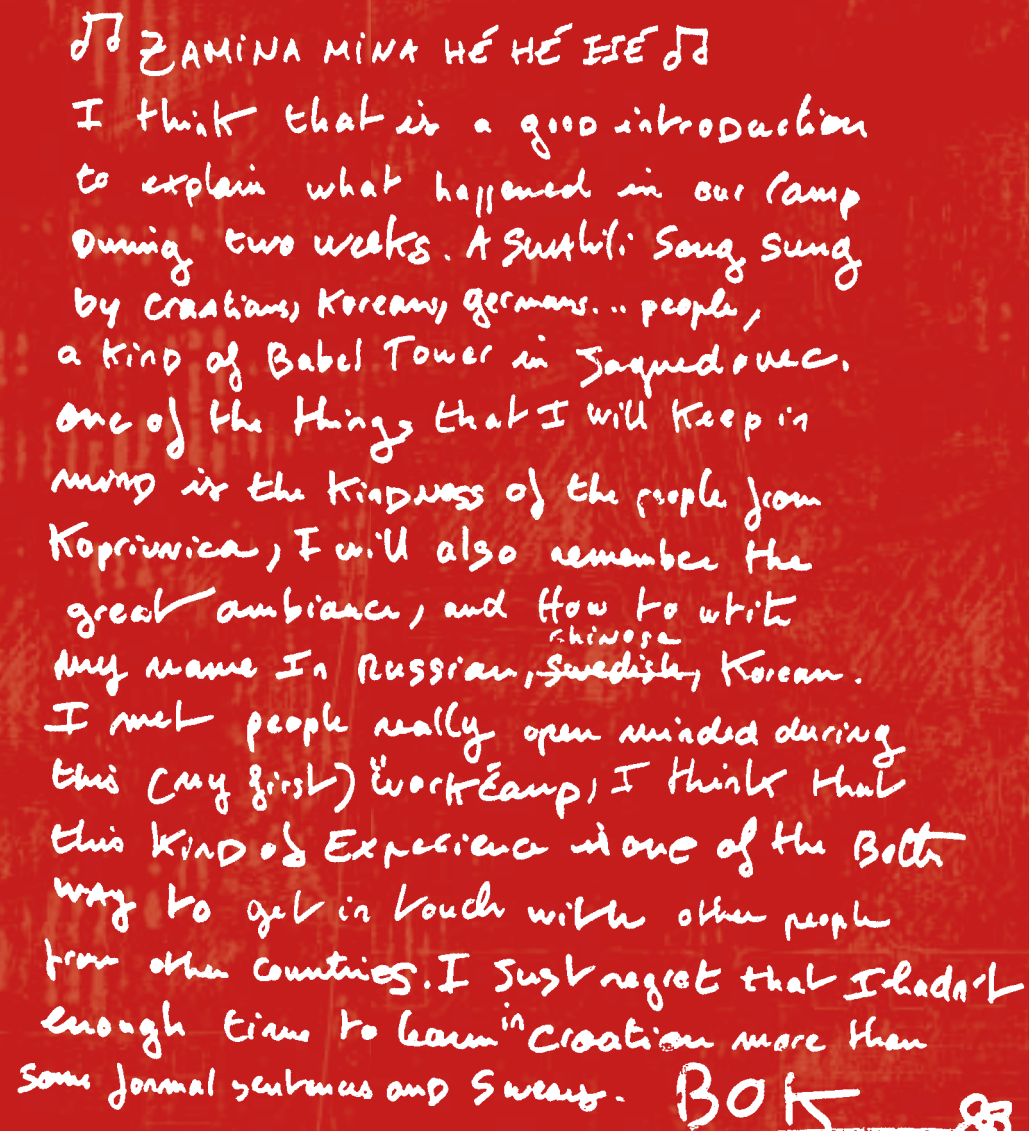 ♫ ZAMINA MINA HÉ HÉ HÉ ♫
I think that is a good introduction
to explain what happened in our camp
During two weeks. A Swahili Song sung
by Croatians, Koreans, germans... people,
a kind of Babel Tower in Jagnedovec.
one of the things that I will keep in
mind is the kindness of the people from
Koprivnica, I will also remember the
great ambiance, and How to write
chinese
my name In Russian, ~~swedish~~, Korean.
I met people really open minded during
this (my first) workcamp, I think that
this kind of Experience is one of the Better
way to get in touch with other people
from other countries. I Just regret that I hadn't
enough time to learn in Croatian more than
some formal sentences and Swears. BOK